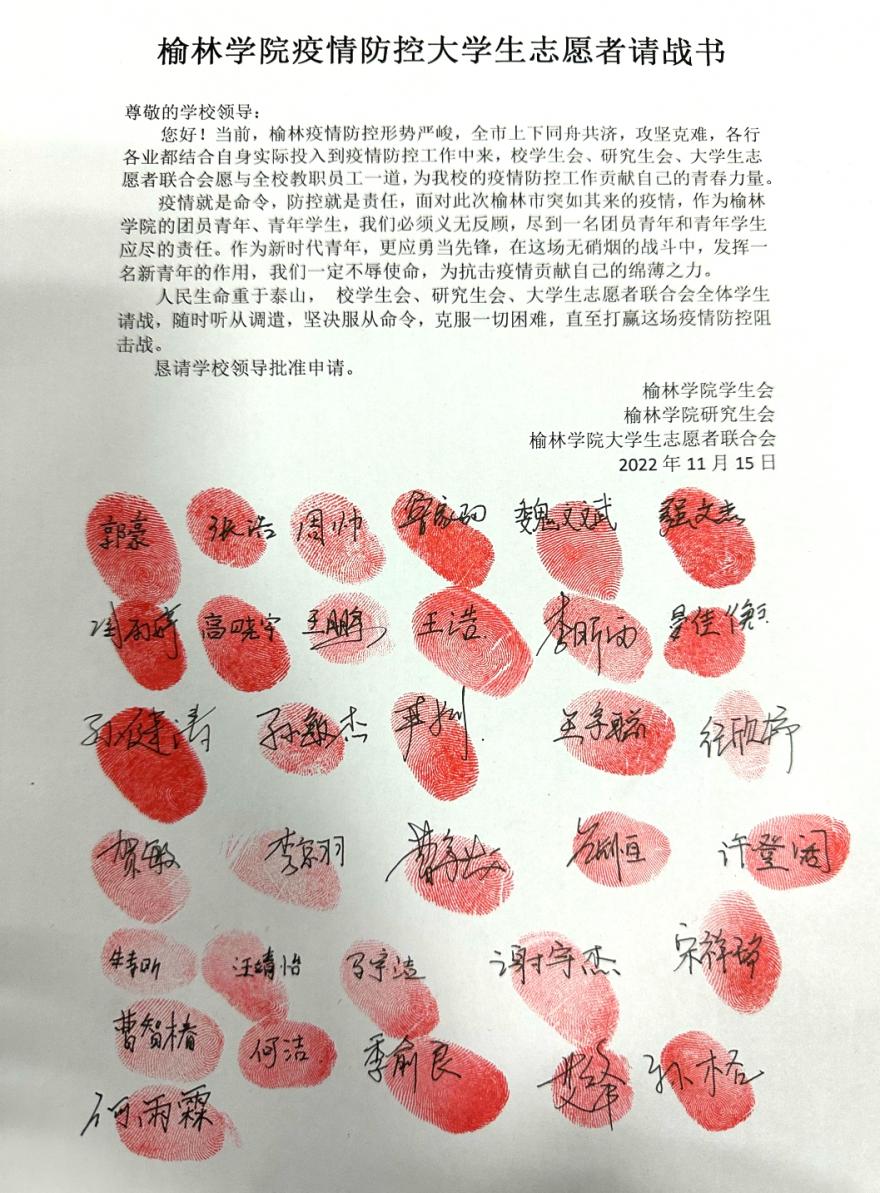 榆林学院疫情防控大学生志愿者请战书
尊敬的学校领导：
您好！当前，榆林疫情防控形势严峻，全市上下同舟共济，攻坚克难，各行
各业都结合自身实际投入到疫情防控工作中来，校学生会、研究生会、大学生志
愿者联合会愿与全校教职员工一道，为我校的疫情防控工作贡献自己的青春力量。
疫情就是命令，防控就是责任，面对此次榆林市突如其来的疫情，作为榆林
学院的团员青年、青年学生，我们必须义无反顾，尽到一名团员青年和青年学生
应尽的责任。作为新时代青年，更应勇当先锋，在这场无硝烟的战斗中，发挥一
名新青年的作用，我们一定不辱使命，为抗击疫情贡献自己的绵薄之力。
人民生命重于泰山， 校学生会、研究生会、大学生志愿者联合会全体学生
请战，随时听从调遣，坚决服从命令，克服一切困难，直至打赢这场疫情防控阻
击战。
恳请学校领导批准申请。
榆林学院学生会
榆林学院研究生会
榆林学院大学生志愿者联合会
2022 年 11 月 15 日
郭豪 张浩 周帅 魏文斌 强文杰
高晓宇 王鹏 王浩 李昕雨 晏佳衡
孙建涛 孙敏杰 尹刚
贺敏 许登阔
朱幸昕 汪靖怡 马宇洁 谢宇杰 宋祥瑞
曹智楠 何洁 季俞良 孙格
何雨霖